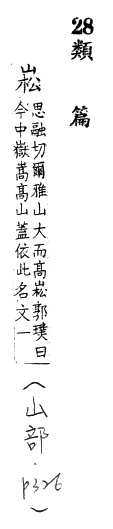 28
類篇
崧 思融切爾雅山大而高崧郭璞曰
今中嶽嵩高山蓋依此名文一
(山部.p326)